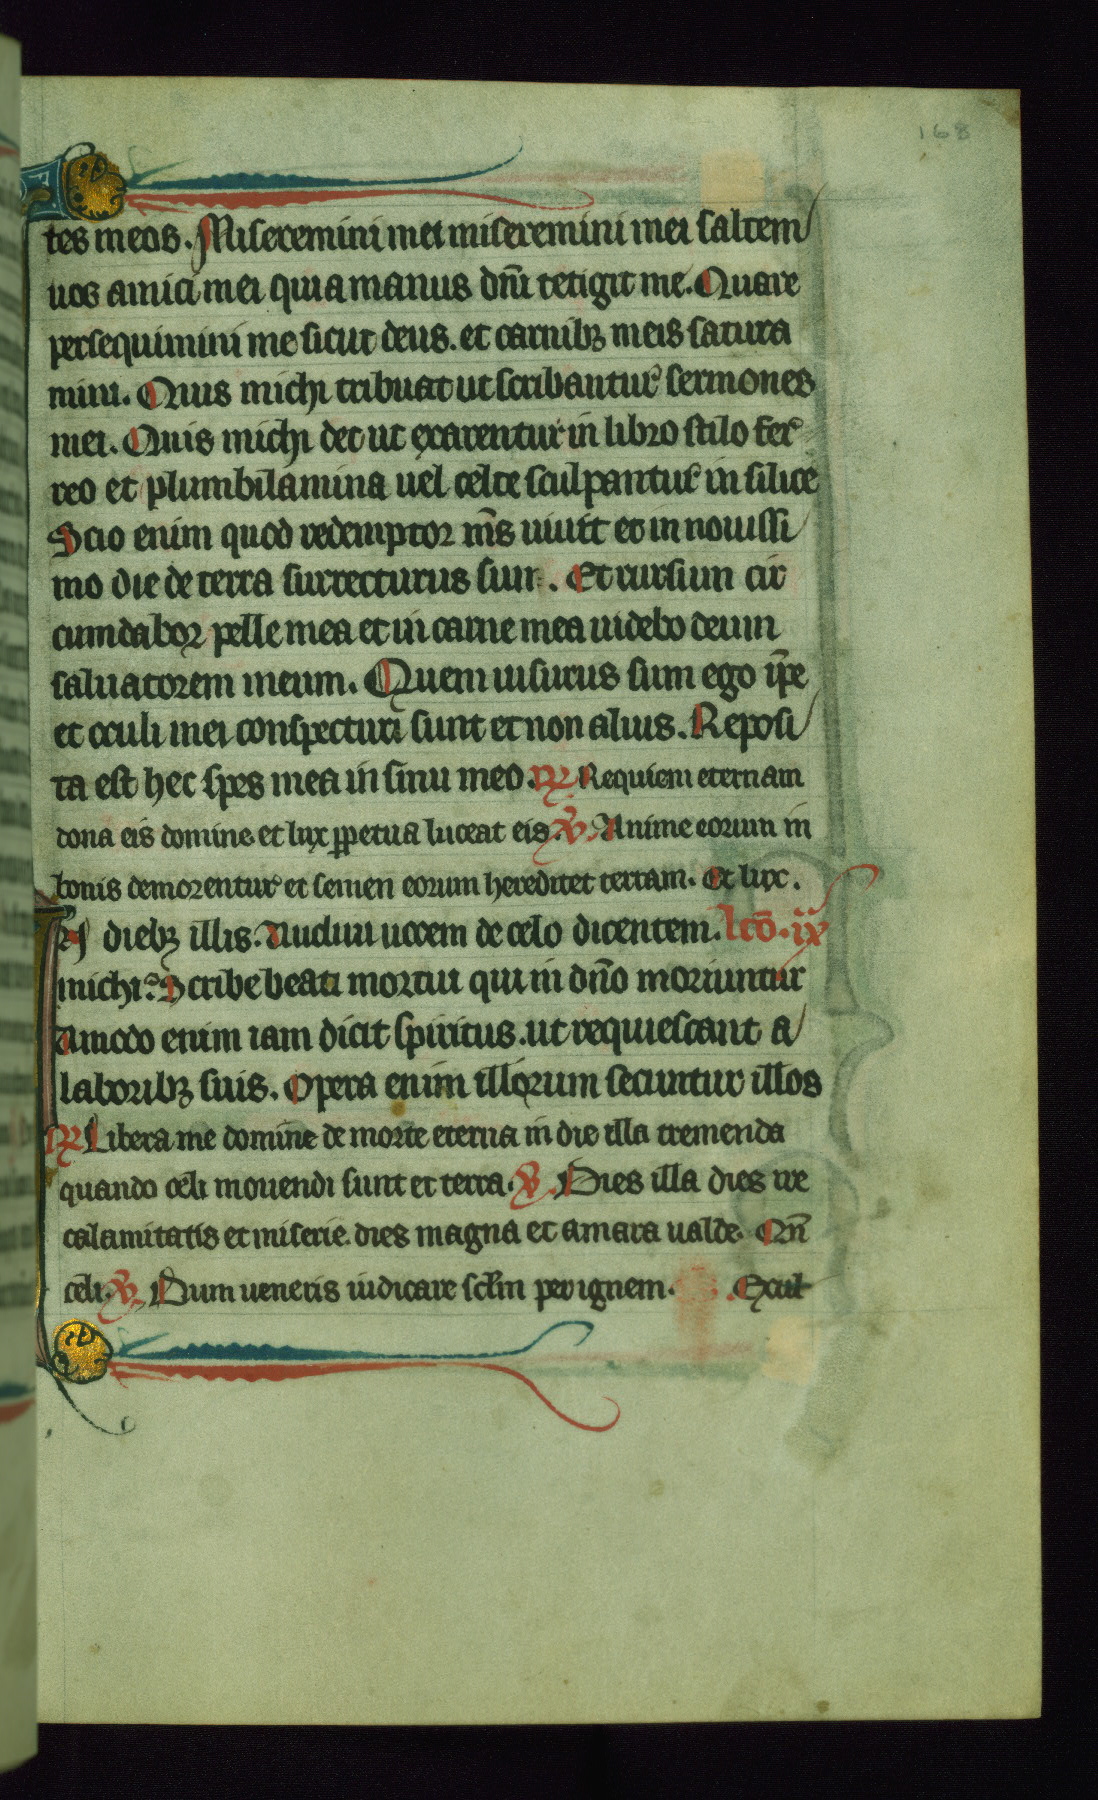 168
tes meos. Miseremini mei miseremini mei saltem
uos amici mei quia manus dn̄i tetigit me. Quare
persequimini me sicut deus. et carnibꝫ meis satura
mini. Quis michi tribuat ut scribantur sermones
mei. Quis michi det ut exarentur in libro stilo fer
reo et plumbi lamina uel celte sculpantur in silice
Scio enim quod redemptor m̄s uiuit et in nouissi
mo die de terra surrecturus sum. Et rursum cir
cumdabor pelle mea et in carne mea uidebo deum
saluatorem meum. Quem uisurus sum ego ip̄e
et oculi mei conspecturi sunt et non alius. Reposi
ta est hec spes mea in sinu meo. ℟ Requiem eternam
dona eis domine et lux ꝑpetua luceat eis. ℣. Anime eorum in
bonis demorentur et semen eorum hereditet terram. Et lux.
In diebꝫ illis. Audiui uocem de celo dicentem. lcō. ix
michi. Scribe beati mortui qui in dn̄o moriuntur
Amodo enim iam dicit spiritus. ut requiescant a
laboribꝫ suis. Opera enim illorum secuntur illos
℟ Libera me domine de morte eterna in die illa tremenda
quando celi mouendi sunt et terra. ℣. Dies illa dies ire
calamitatis et miserie. dies magna et amara ualde. Qn̄
celi. ℣. Dum ueneris iudicare sclm̄ per ignem. Exul